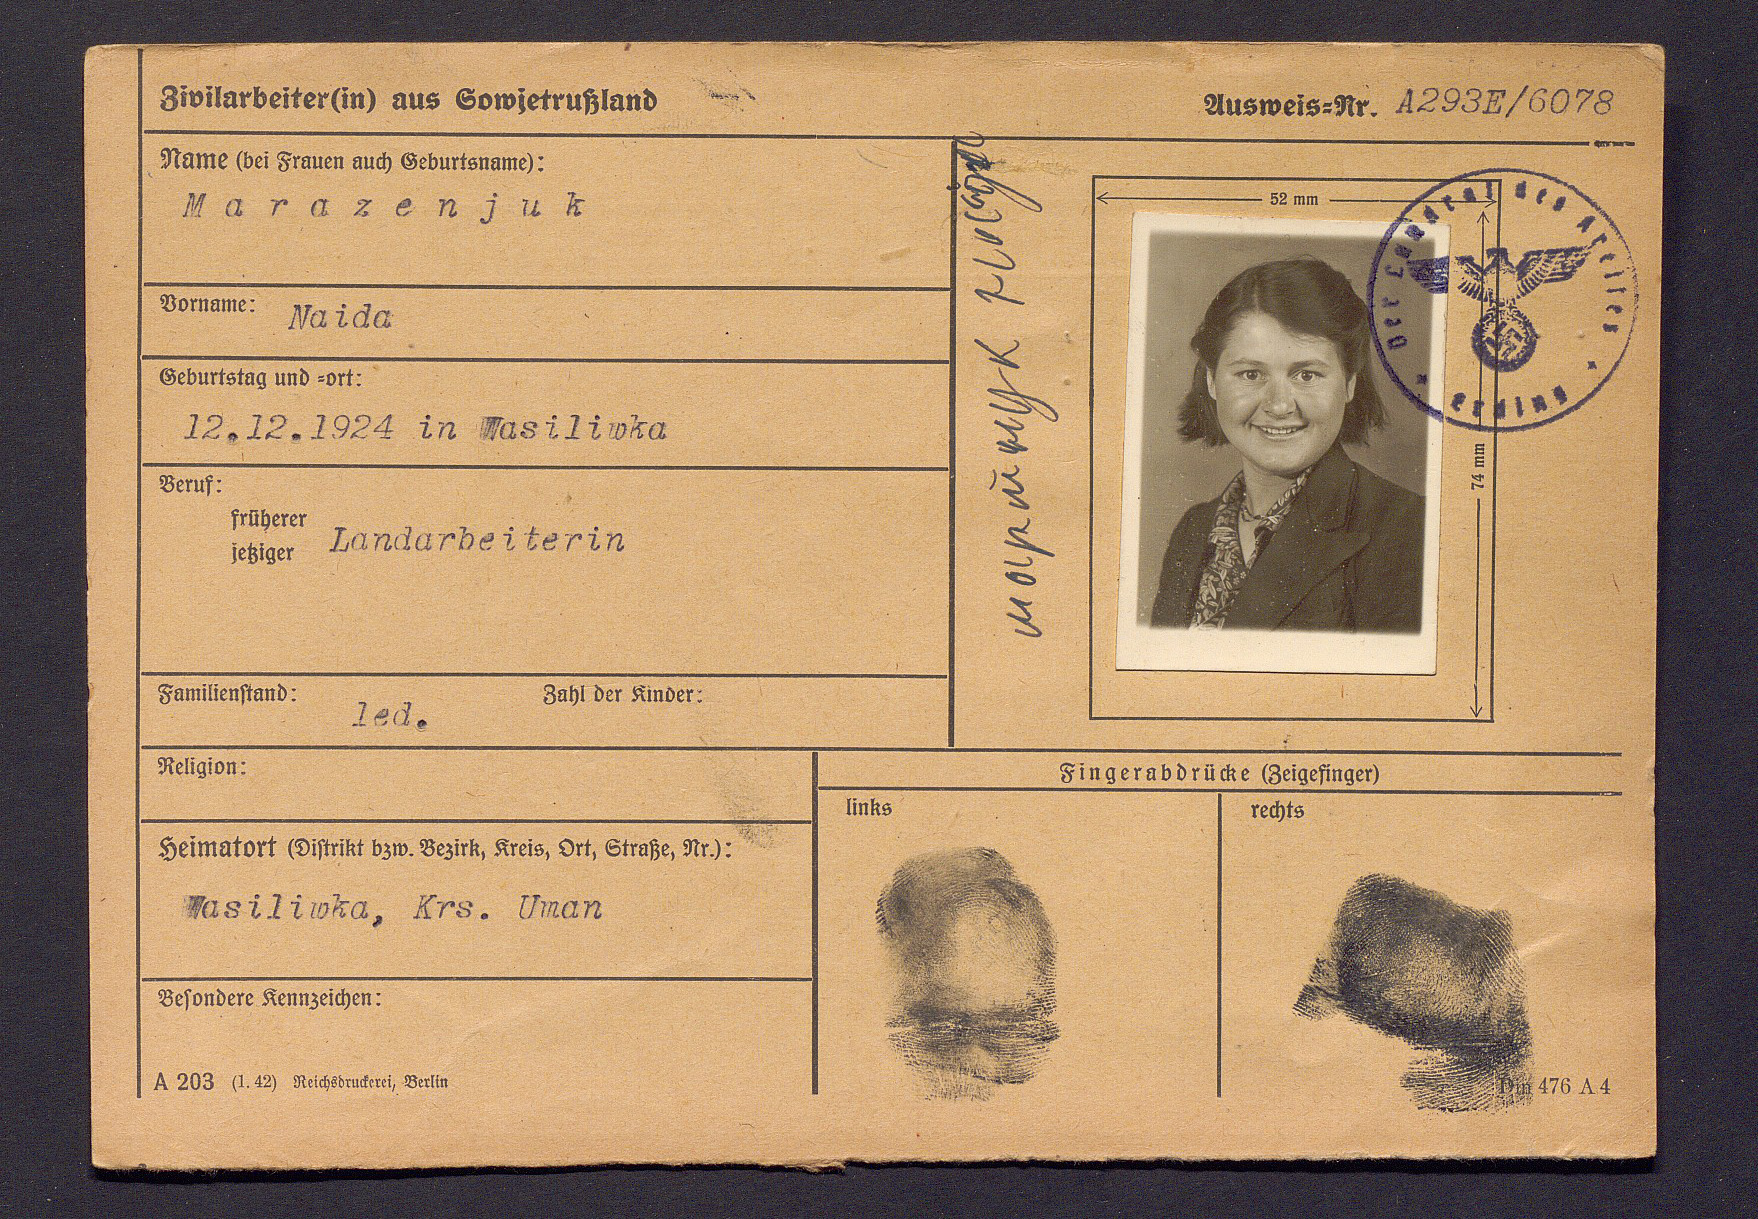 Zivilarbeiter(in) aus Sowjetrußland
Ausweis=Nr. A293E/6078
Name (bei Frauen auch Geburtsname):
Marazenjuk
Vorname: Naida
Geburtstag und =ort:
12.12.1924 in Wasiliwka
Beruf:
früherer
jetziger
Landarbeiterin
Familienstand: led.
Zahl der Kinder:
52 mm
74 mm
Der Landrat des Kreises
Erding
Religion:
Heimatort (Distrikt bzw. Bezirk, Kreis, Ort, Straße, Nr.):
Wasiliwka, Krs. Uman
Besondere Kennzeichen:
Fingerabdrücke (Zeigefinger)
links
rechts
A 203 (1. 42) Reichsdruckerei, Berlin
Din 476 A 4